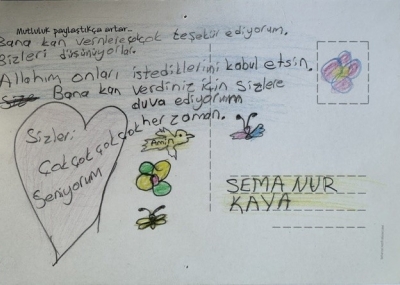 Mutluluk paylaştıkça artar...
Bana kan verenlere çokçok teşekür ediyorum.
Bizleri düşünüyorlar.
Allahım onları istediklerini kabul etsin.
Bana kan verdiniz için Sizlere
dua ediyorum
her zaman.
Sizleri
Çok çok çok çok
Seviyorum
Amin
SEMA NUR
KAYA